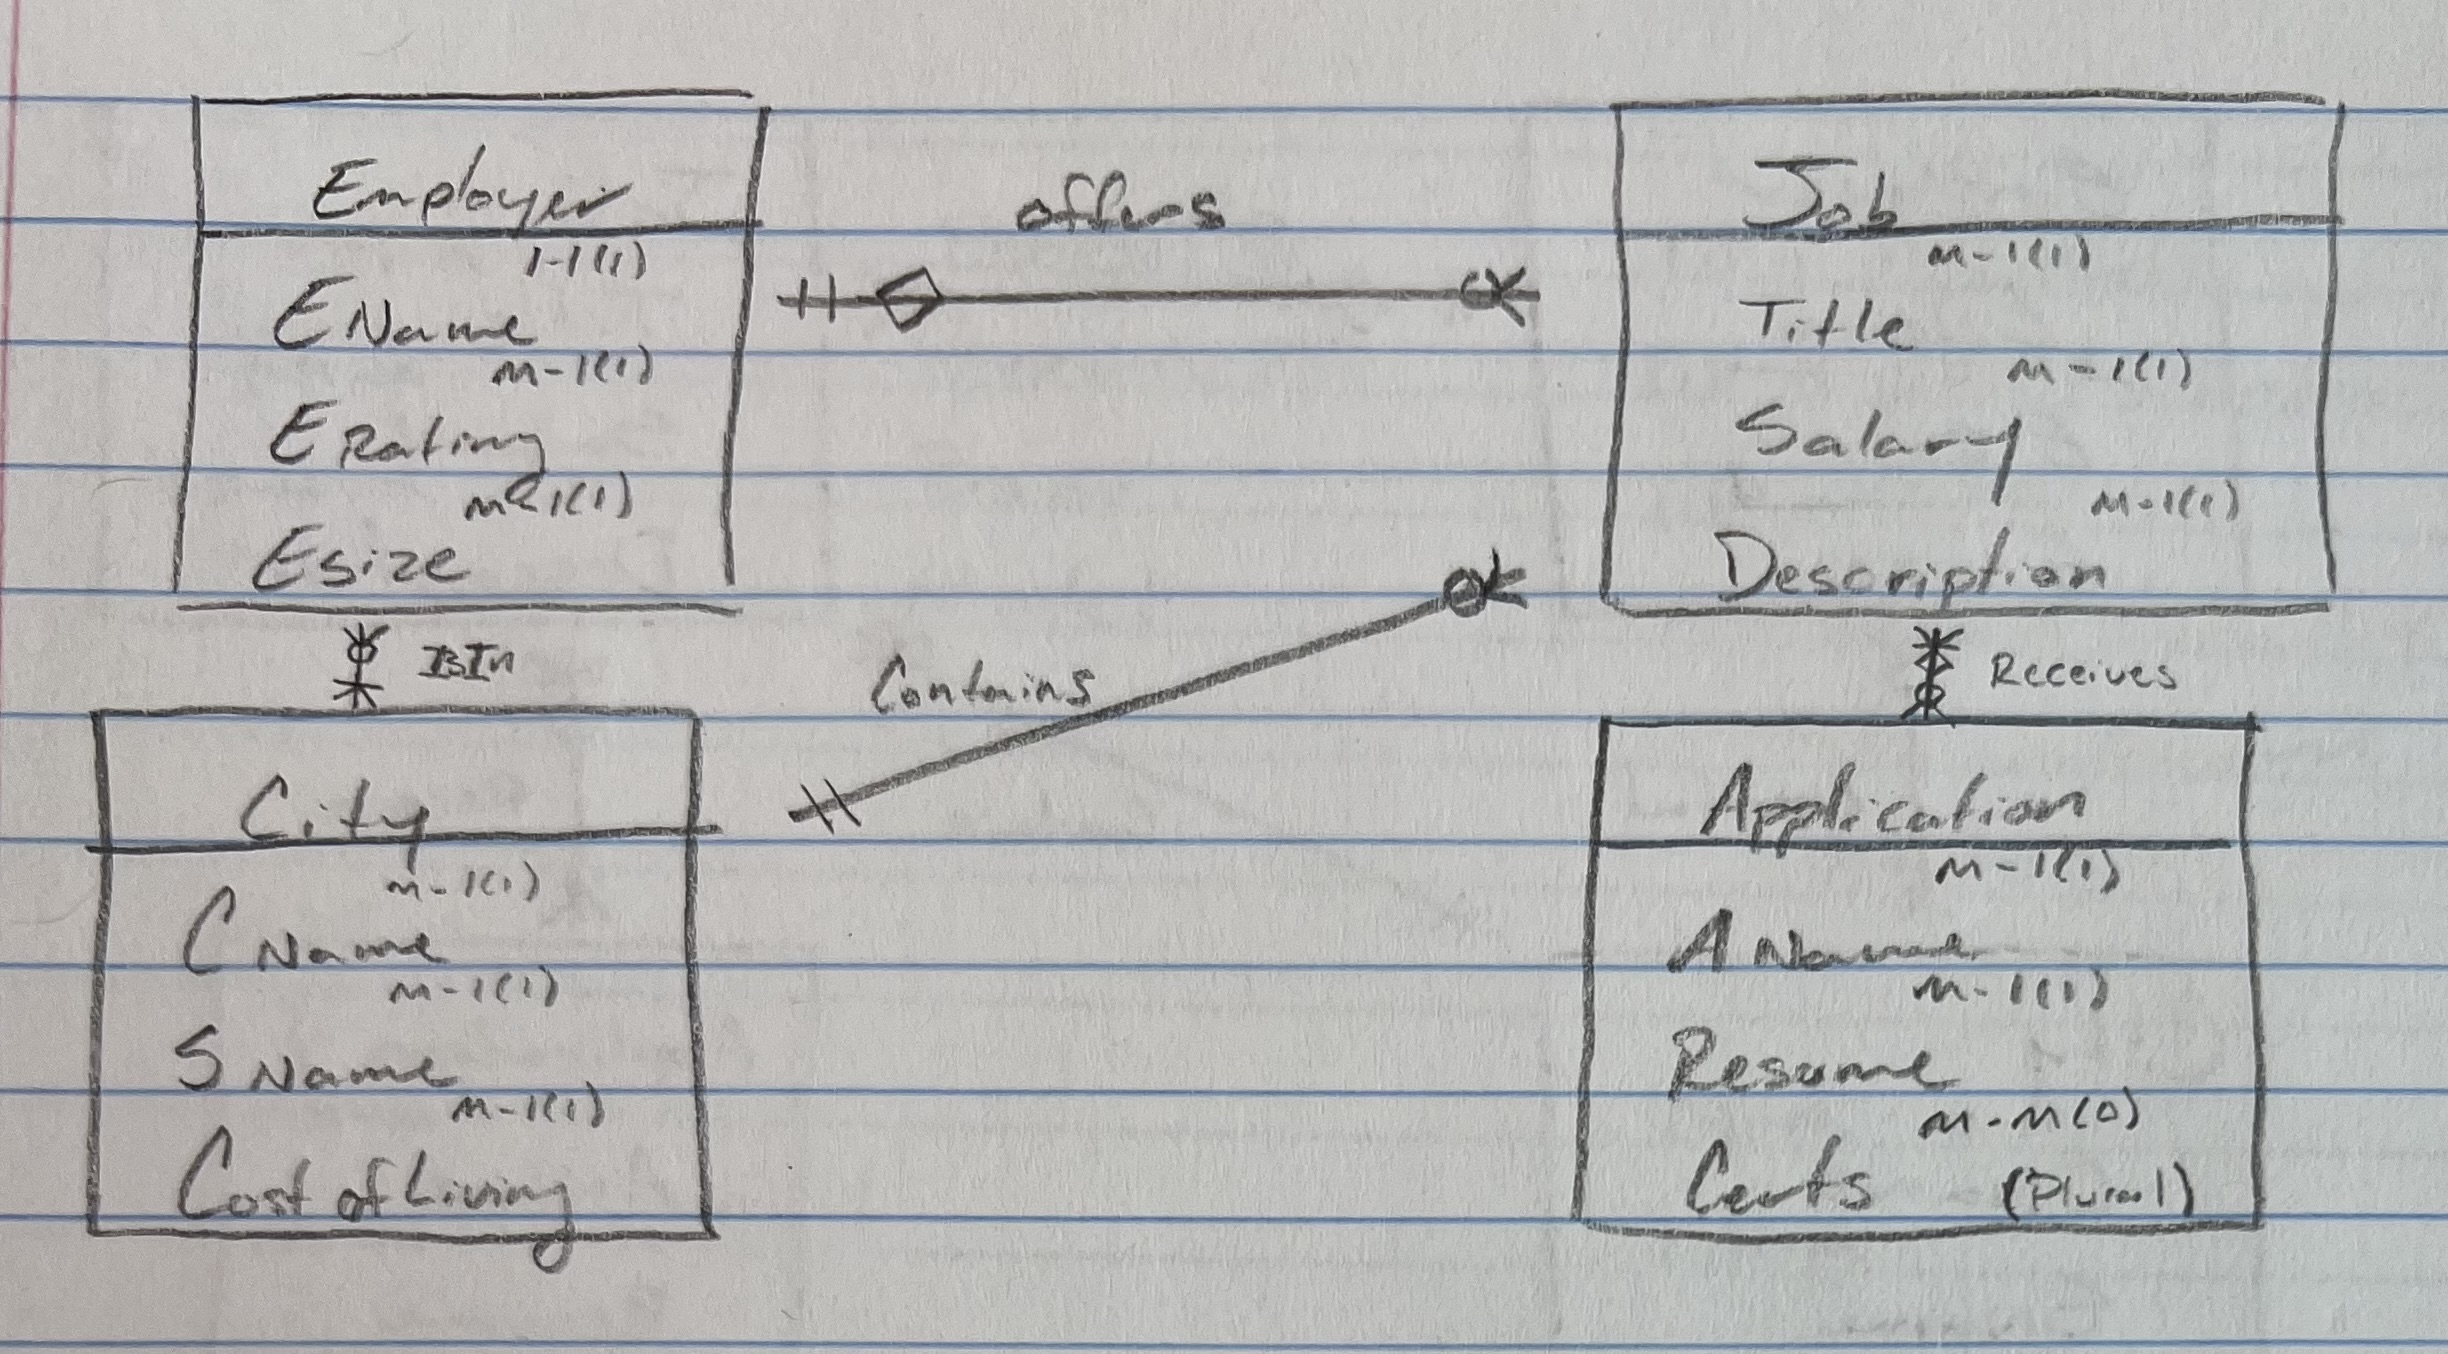 Employer
1-1(1)
EName
m-1(1)
ERating
m-1(1)
Esize
offers
Job
m-1(1)
Title
m-1(1)
Salary
m-1(1)
Description
IsIn
Contains
Receives
City
m-1(1)
CName
m-1(1)
SName
m-1(1)
Cost of Living
Application
m-1(1)
AName
m-1(1)
Resume
m-m(0)
Certs (Plural)